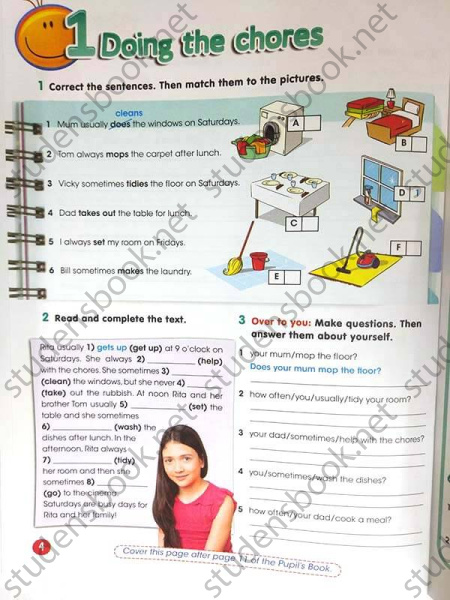 1 Doing the chores
1 Correct the sentences. Then match them to the pictures.
cleans
1 Mum usually does the windows on Saturdays.
2 Tom always mops the carpet after lunch.
3 Vicky sometimes tidies the floor on Saturdays.
4 Dad takes out the table for lunch.
5 I always set my room on Fridays.
6 Bill sometimes makes the laundry.
A
B
C
D
E
F
2 Read and complete the text.
Rita usually 1) gets up (get up) at 9 o'clock on
Saturdays. She always 2) __________ (help)
with the chores. She sometimes 3) __________
(clean) the windows, but she never 4) __________
(take) out the rubbish. At noon Rita and her
brother Tom usually 5) __________ (set) the
table and she sometimes
6) __________ (wash) the
dishes after lunch. In the
afternoon, Rita always
7) __________ (tidy)
her room and then she
sometimes 8) __________
(go) to the cinema.
Saturdays are busy days for
Rita and her family!
3 Over to you: Make questions. Then
answer them about yourself.
1 your mum/mop the floor?
Does your mum mop the floor?
2 how often/you/usually/tidy your room?
3 your dad/sometimes/help with the chores?
4 you/sometimes/wash the dishes?
5 how often/your dad/cook a meal?
4
Cover this page after page 11 of the Pupil's Book.
studensbook.net